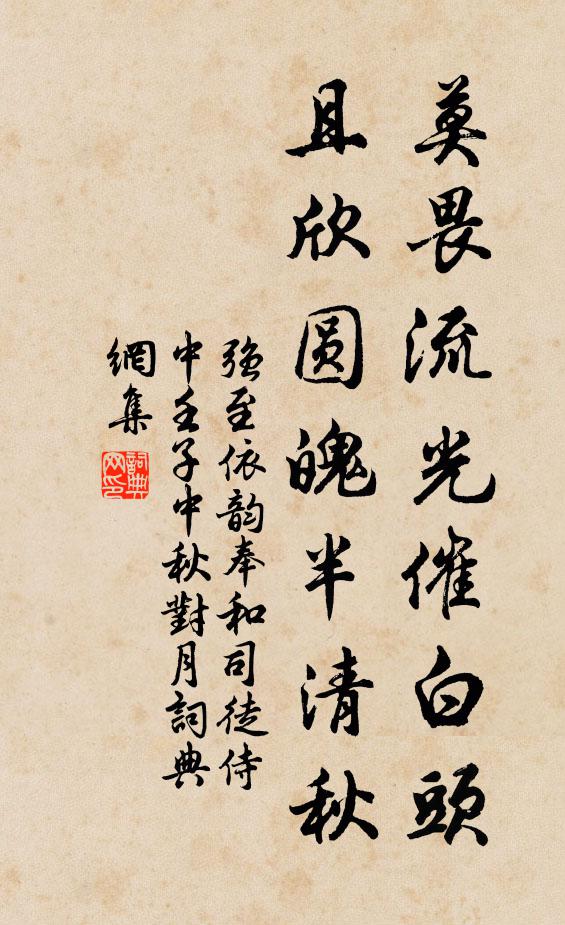 莫畏流光催白頭
且欣圓魄半清秋
強至依韵奉和司徒侍
中壬子中秋對月詞典
網集
詞典網印